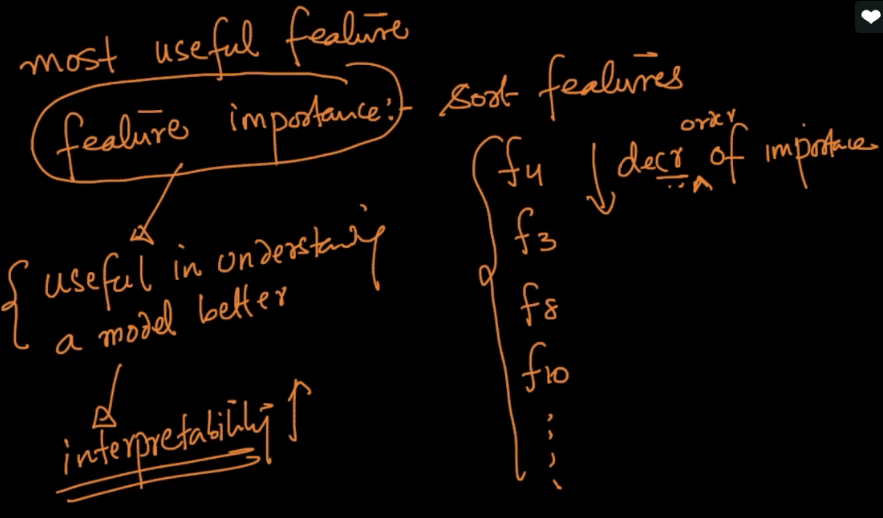 most useful feature
feature importance:-
useful in understanding
a model better
interpretability ↑
sort features
f4 ↓ decr order of importance
f3
f8
f10